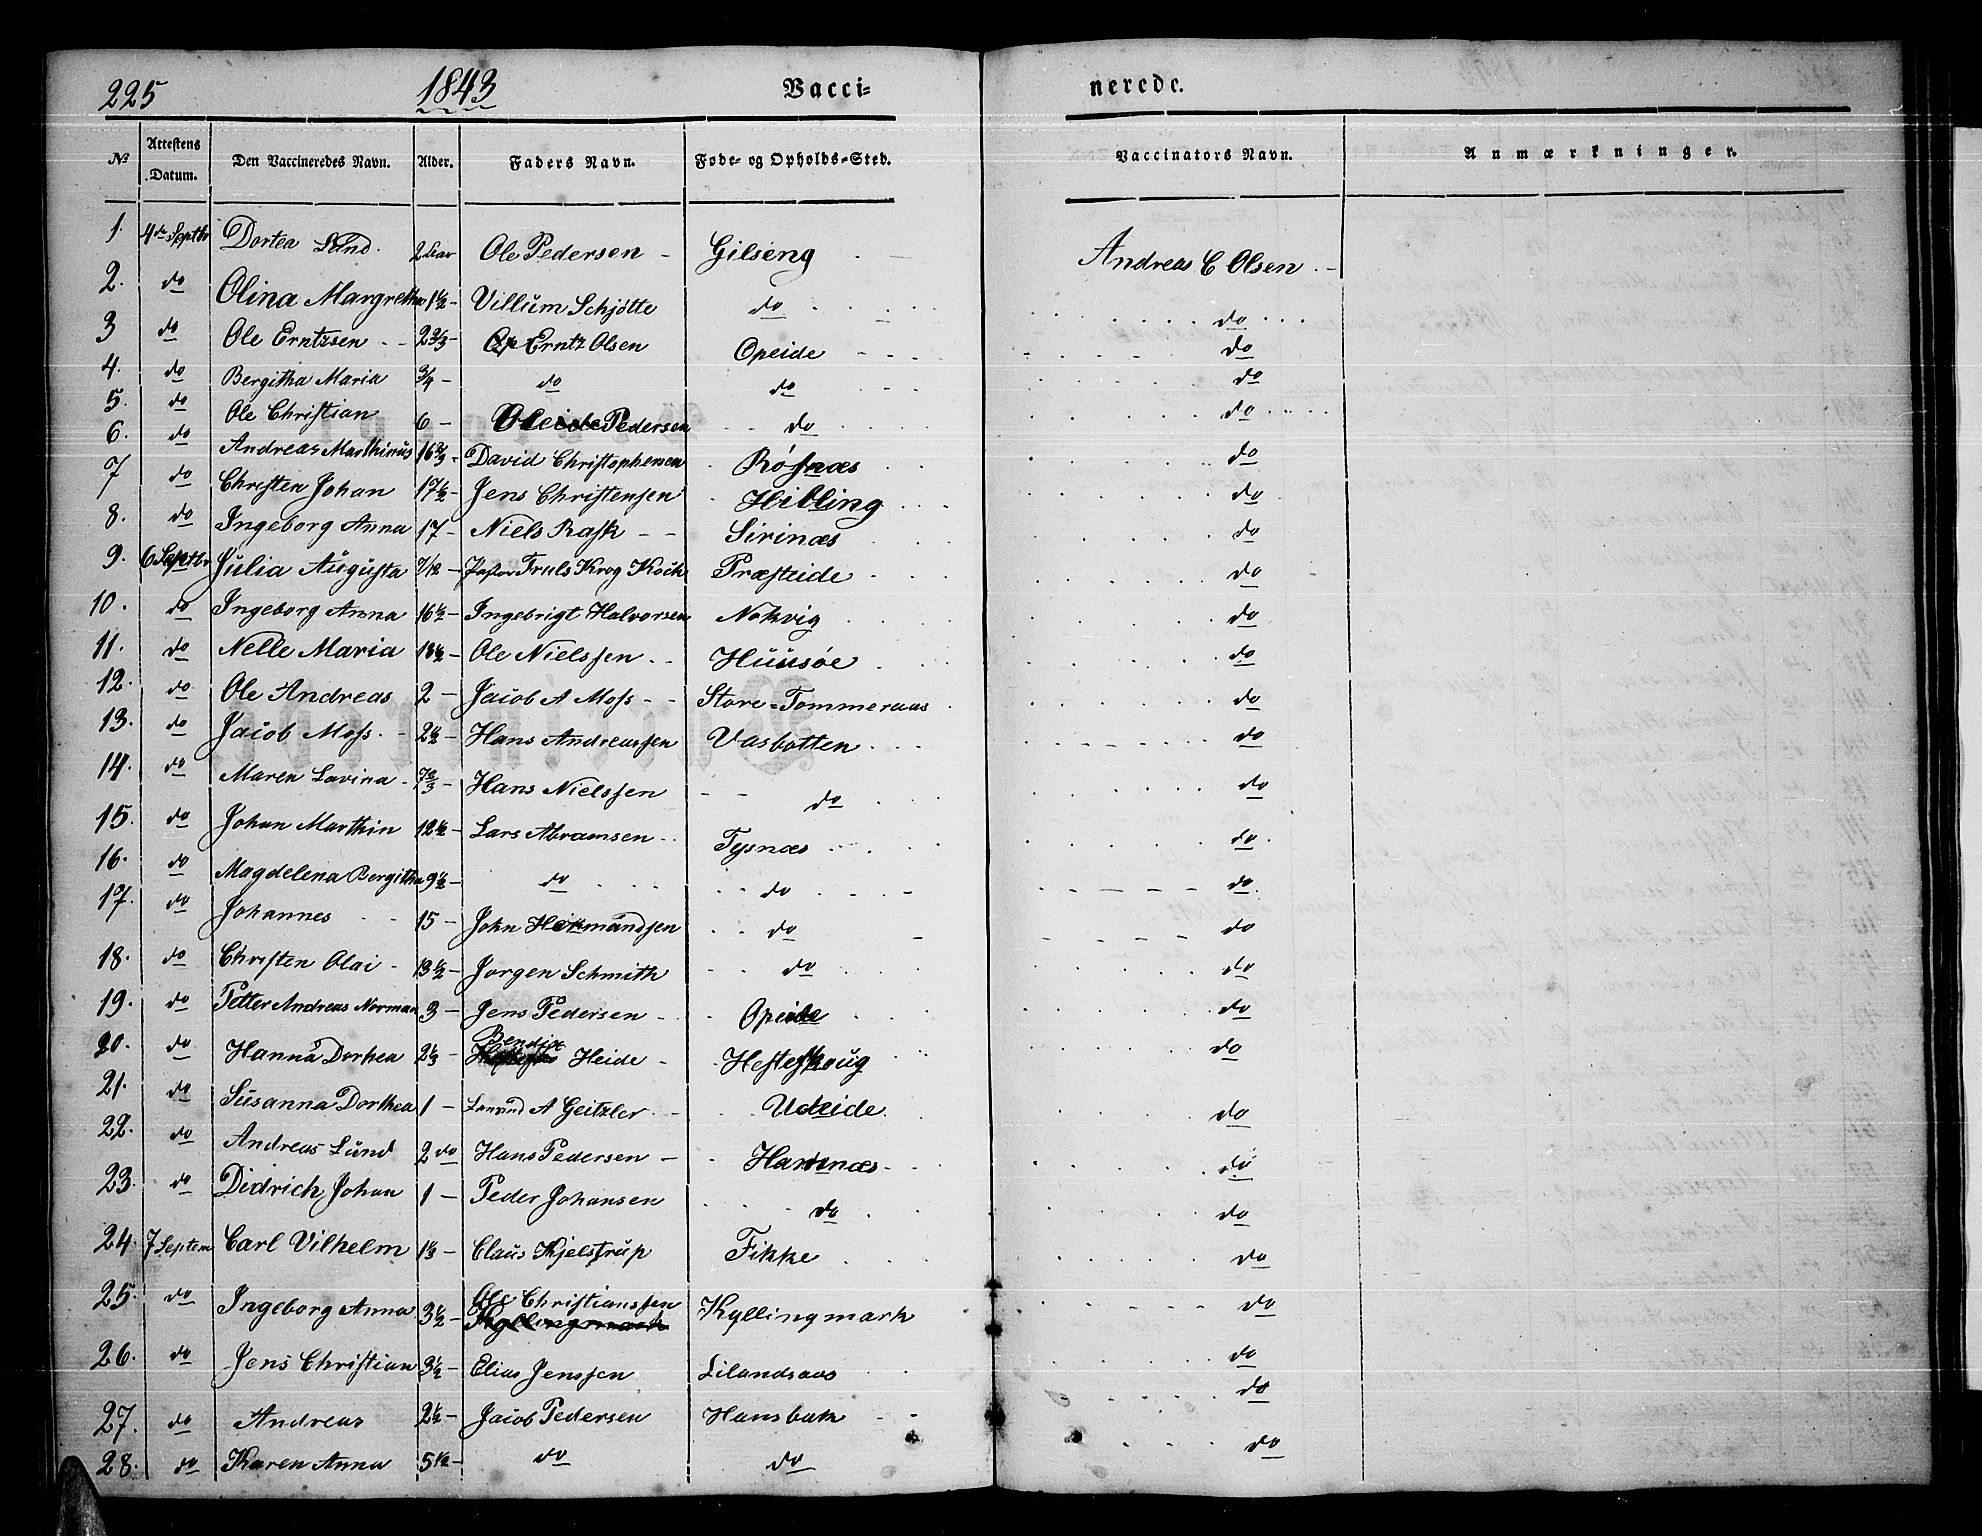 225 1843 Vacci- nerede.
No Attestens Datum. Den Vaccineredes Navn. Alder. Faders Navn. Føde- og Opholds-Sted. Vaccinators Navn. Anmærkninger.
1. 4de Septbr Dortea Lund. 2 Ole Pedersen - Gilseng Andreas C Olsen. -
2. do Olina Margretha 1 1/2 - Villum Schjøtte do do
3 do Ole Erntzsen - - 2 2/3 - Erntz Olsen Opeide do
4. do Bergitha Maria 3/4 - do do do
5. do Ole Christian 6 - Ole Pedersen do do
6. do Andreas Marthinus 16 2/3 - David Christophersen Røsnæs do
7 do Christen Johan 17 1/2 - Jens Christensen Hibling do
8. do Ingeborg Anna 17 - Niels Rask - - Sirinæs do
9. 6 Septbr Julia Augusta 7/12 - Pastor Truls Krog Koch Præsteide do
10. do Ingeborg Anna 16 1/2 - Ingebrigt Halvorsen Nokvig do
11. do Nelle Maria 18 1/2 - Ole Nielssen - - Huusøe do
12. do Ole Andreas 2 - Jacob A Moss - - Store-Tommeraas do
13. do Jacob Moss. - 2 1/2 - Hans Andreassen Vasbotten do
14. do Maren Lavina - 7 2/3 - Hans Nielssen - - do do
15. do Johan Marthin 12 1/2 - Lars Abramsen Tysnæs do
16. do Magdelena Bergitha 9 1/2 - do do do
17. do Johannes 15 - John Hermandsen do do
18. do Christen Olai - 13 1/2 - Jorgen Schmith do do
19. do Petter Andreas Norman 3 - Jens Pedersen - Opeide do
20. do Hanna Dorhea 2 1/3 - Bendix Heide - Hesteskoug do
21. do Susanna Dorthea 1 - A Geitzler Udeide do
22. do Andreas Lund 2 do Hans Pedersen - Hamnæs - do
23. do Didrich Johan 1 - Peder Johansen do do
24. 7 Septem Carl Vilhelm 1 1/3 - Claus Kjelstrup Fikke do
25. do Ingeborg Anna 3 1/2 - Ole Christianssen Kyllingmark do
Kyllingmark
26. do Jens Christian 3 1/2 - Elias Jenssen Lilandsaas do
27. do Andreas 2 1/2 - Jacob Pedersen Hansbak - - do
28. do Karen Anna 5 1/2 - do do do